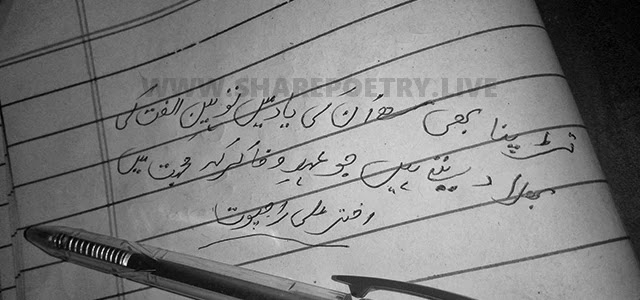 WWW.SHAREPOETRY.LIVE
تڑپنا بھی ھے اُن کی یاد میں توہینِ الفت کی
بھلا دیتے ہیں جو عہدِ وفا کر کہ محبت میں
اختر علی راجپوت